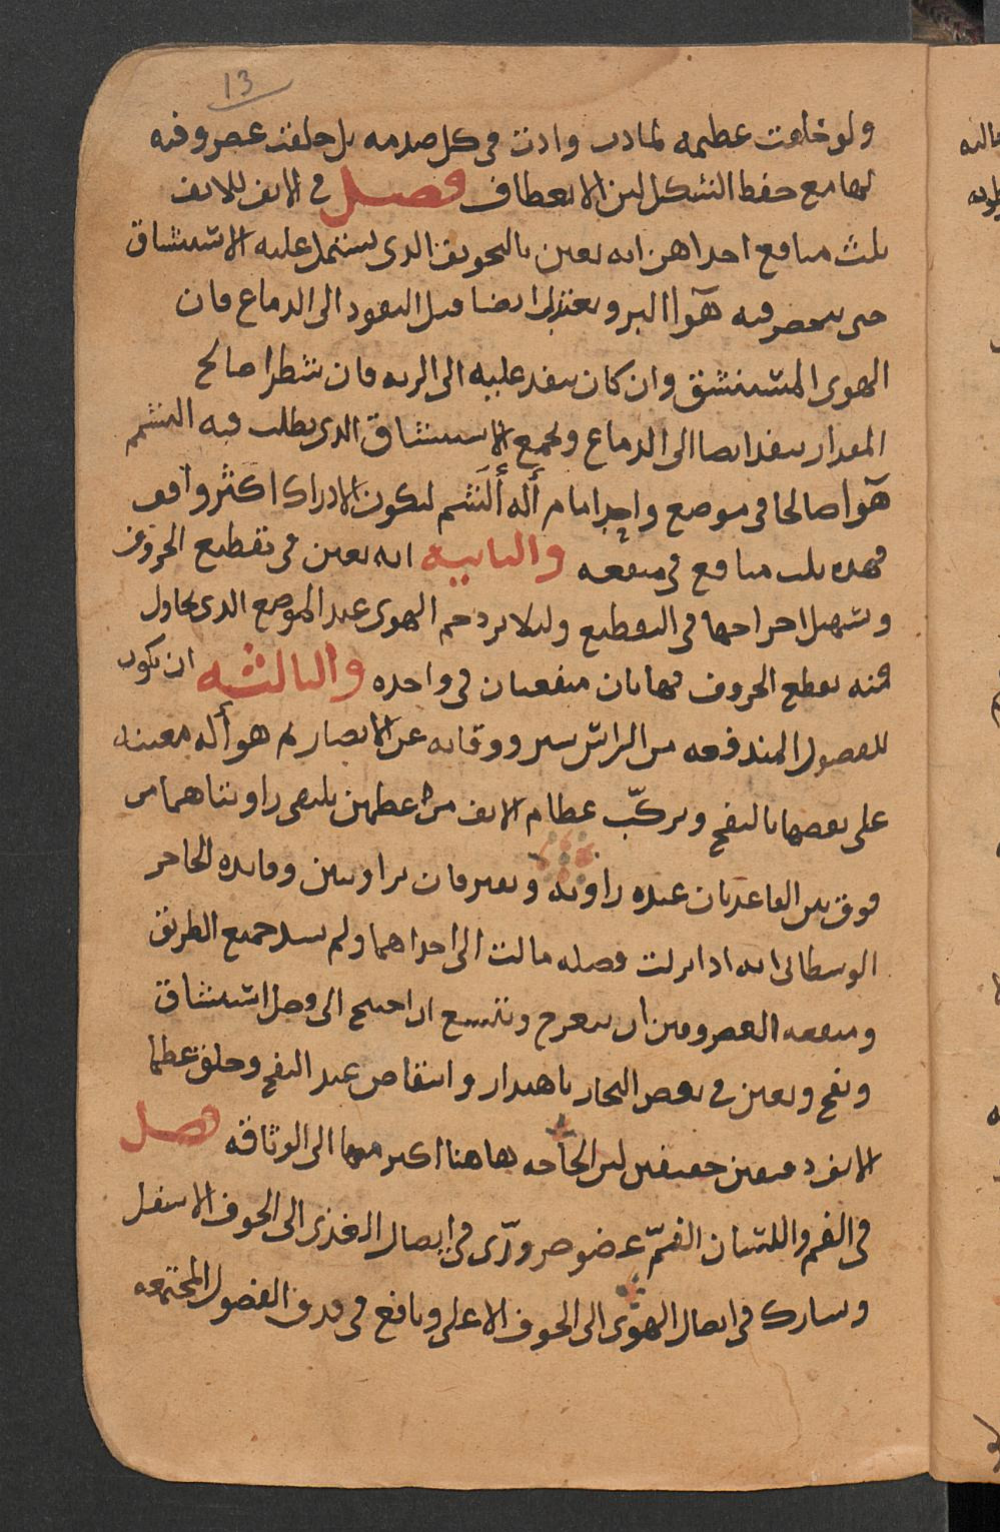 13
ولو خلقت عظيمه لماد ب وادت فى كل صدمه بل خلقت غضروفيه
لها مع حفظ الشكل لين الانعطاف فصل فى الانف للانف
ثلث منافع احداهن انه يعين بالتجويف الدى يشتمل عليه الاستنشاق
حتى ينحصر فيه هوآ اكبر ويعتدل ايضا قبل النفود الى الدماع فان
الهوى المستنشق وان كان ينفد عليه الى الريه فان شطرا صالح
المقدار ينفد ايضا الى الدماع ولجمع الاستنشاق الدى يطلب فيه التشمم
هوآ صالحا فى موضع واحد امام أله ألتشم ليكون الادراك اكثر وافق
فهده ثلث منافع فى منفعه والثانيه انه يعين فى تقطيع الحروف
وتسهيل اخراجها فى التقطيع ولئلا يزدحم الهوى عند الموضع الدى يحاول
فيه تقطع الحروف فهاتان منفعتان فى واحده والثالثه ان يكون
للفصول المندفعه من الراس ستر ووقايه عن الابصار ثم هو أله معينه
على نفصها بالنفخ وتركّب عظام الانف من عظمين يلتقى زاويتاهما من
فوق بين القاعدتان عنده زاويه ويفترقان بزاويتين وفايده الحاجز
الوسطانى انه ادا نزلت فضله مالت الى احداهما ولم تسد جميع الطريق
ومنفعه الغضروفين ان ينفرج ويتسع ان احتيج الى فضل استنشاق
ونفخ ويعين فى نفض البخار باهتزاز وانتقاص عند النفخ وخلق عظما
الانف دقيقين خفيفين لين الحاجه هاهنا اكثر منها الى الوثاقه فصل
فى الفم واللسان الفمّ عضو ضرورّى فى ايصال الغذى الى الجوف الاسفل
وشارك فى ايصال الهوى الى الجوف الاعلى ونافع فى قدف الفضول المجتمعه